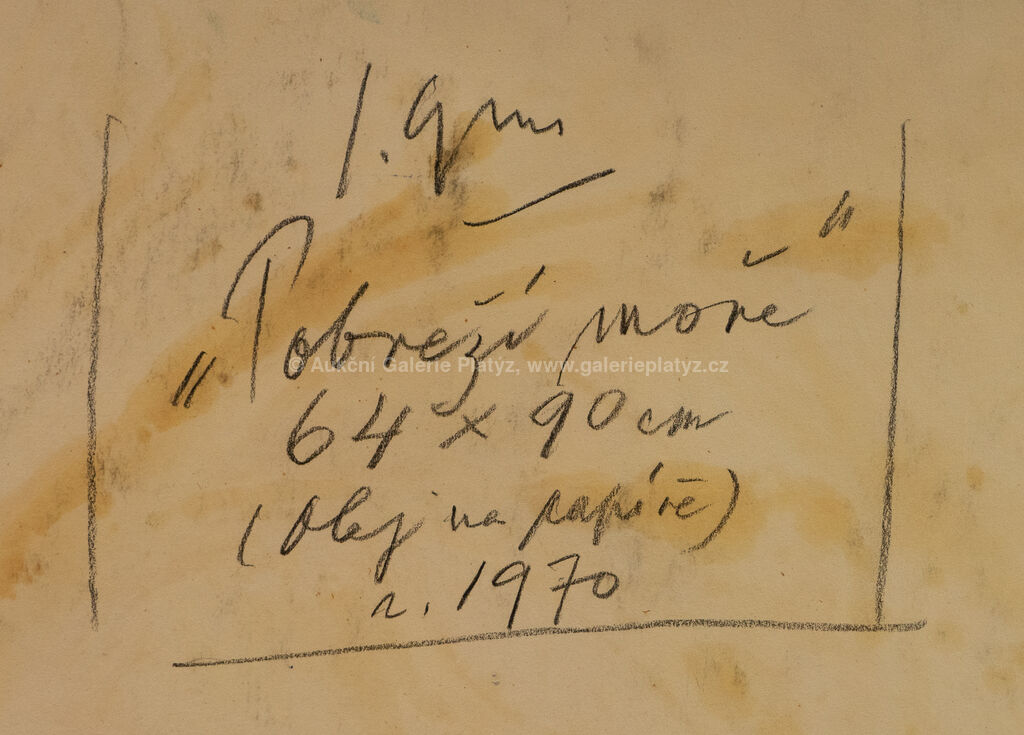 „Pobřeží moře"
© Aukční Galerie Platýz, www.galerieplatyz.cz
64 x 90 cm
(olej na papíře)
r. 1970